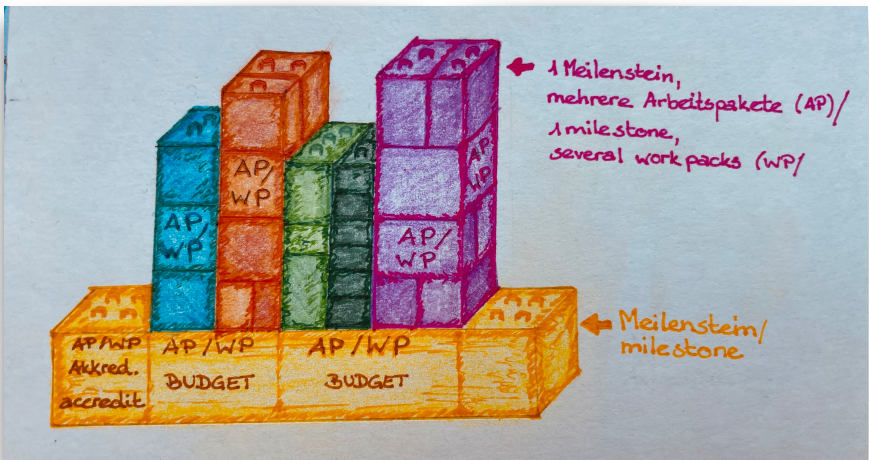 1 Meilenstein,
mehrere Arbeitspakete (AP)/
1 milestone,
several work packs (WP/
AP/
WP
AP/
WP
AP/
WP
AP/
WP
Meilenstein/
milestone
AP/WP
Akkred.
accredit
AP/WP
BUDGET
AP/WP
BUDGET